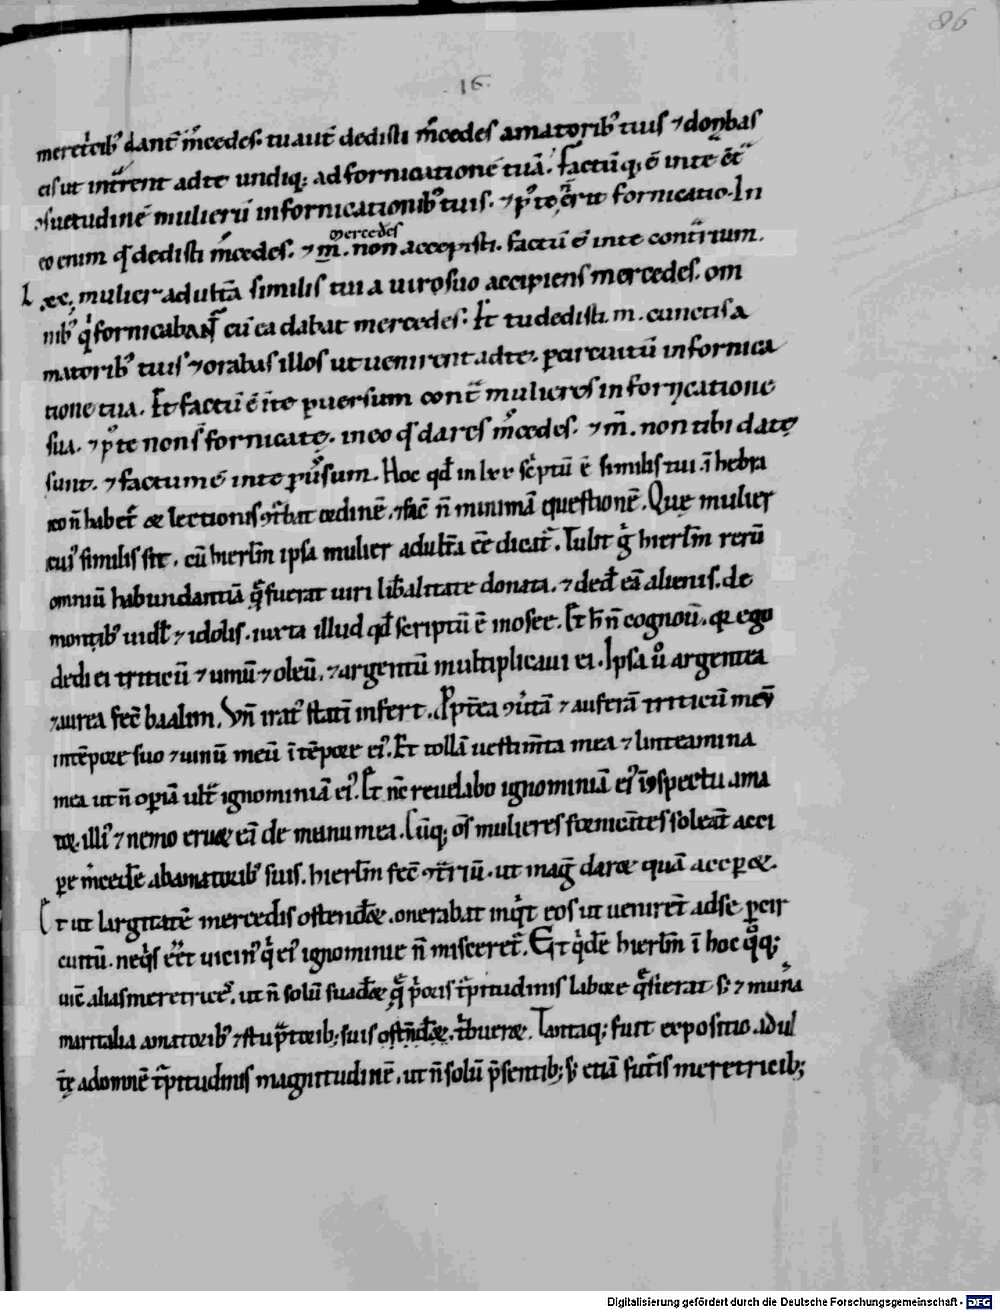 86
16.
meret'cib' dant̄ m̄cedes. tu aut̄ dedisti m̄cedes amatorib' tuis ⁊ donbas
eis ut int̄rent ad te undiq; ad fornicationē tuā. factūq; ē in te ēt
ꝯsuetudinē mulierū in fornicationib' tuis. ⁊ p' te erit fornicatio. In
mercedes
eo enim qd̄ dedisti m̄cedes. ⁊ m. non accepisti. factū ē in te cont̄rium.
lxx. mulier adult̄a similis tui a uiro suo accipiens mercedes. om
nib' q' fornicabant̄ cū ea dabat mercedes. Et tu dedisti. m. cunctis a
matorib' tuis ⁊ orabas illos ut uenirent ad te. per circuitū in fornica
tione tua. Et factū ē in te ꝑuersum cont̄ mulieres in fornicatione
sua. ⁊ p' te non s̄ fornicatę. in eo qd̄ dares m̄cedes. ⁊ m̄. non tibi datę
sunt. ⁊ factum ē in te ꝑu'sum. Hoc qd̄ in lxx sc̄ptū ē similis tui. ī hebra
ico n̄ habet̄ & lectionis ꝯt'bat ordinē. ⁊ fac̄ n̄ minimā questionē. Quę mulier
cui' similis sit. cū hierlm̄ ipsa mulier adult̄a ēē dicat̄. Tulit g' hierlm̄ rerū
omniū habundantiā q̄ fuerat uiri lib̄alitate donata. ⁊ ded̄ eā alienis. de
montib' uidl̄ ⁊ idolis. iuxta illud qd̄ scriptū ē in osee. Et h̄ n̄ cognouit̄. q̄ ego
dedi ei triticū ⁊ uinū ⁊ oleū. ⁊ argentū multiplicaui ei. Ipsa ū argentea
⁊ aurea fec̄ baalim. Vn̄ irat' statī infert. Ppt̄ea ꝯu'tā ⁊ auferā triticū meū
in tēpore suo ⁊ uinū meū ī tēpore ei'. Et tollā uestim̄ta mea ⁊ linteamina
mea ut n̄ opiā ult̄ ignominiā ei'. Et nc̄ reuelabo ignominiā ei' ī ꝯspectu ama
toꝝ illi' ⁊ nemo eruet eā de manu mea. Cūq; oms̄ mulieres fornicantes soleant̄ acci
pe m̄cedē ab amatorib' suis. hierlm̄ fec̄ ꝯt̄riū. ut mag̃ daret quā acciperet.
Et ut largitatē mercedis ostendat. onerabat inqt̄ eos ut uenirēt ad se ꝑ cir
cuitū. neq's ēēt uicin' q' ei' ignominie n̄ misceret̄. Et q'dē hierlm̄ ī hoc q̄q;
uic̄ alias meretrices. ut n̄ solū suadet q̄ p'oris t̄pitudinis libare q̄sierat s; ⁊ mun̄a
maritalia amatorib' ⁊ stup̄torib; suis ostēndet. t'bueret. Tantaq; fuit expositio. adul
t̄ę ad omnē t̄pitudinis magnitudinē. ut n̄ solū p̄sentib; s; etiā fut̄is meretricib;
Digitalisierung gefördert durch die Deutsche Forschungsgemeinschaft - DFG